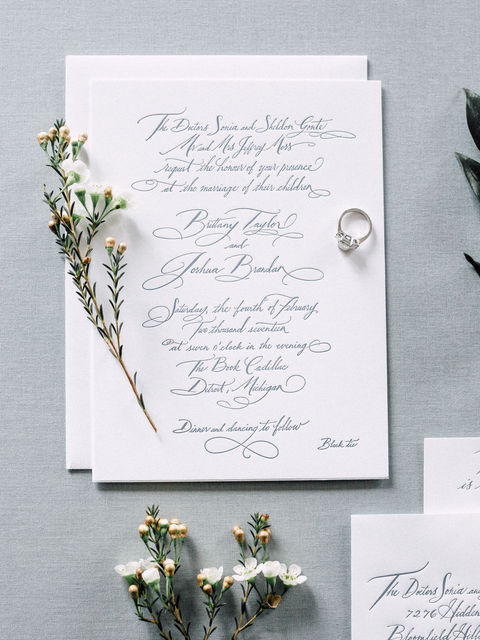 The Doctors Sonia and Sheldon Gonte
Mr and Mrs Jeffrey Moss
request the honour of your presence
at the marriage of their children
Brittany Taylor
and
Joshua Brandan
Saturday, the fourth of February
Two thousand seventeen
at seven o'clock in the evening
The Book Cadillac
Detroit, Michigan
Dinner and dancing to follow
Black tie
is
The Doctors Sonia and
7276 Hidden
Bloomfield Hil